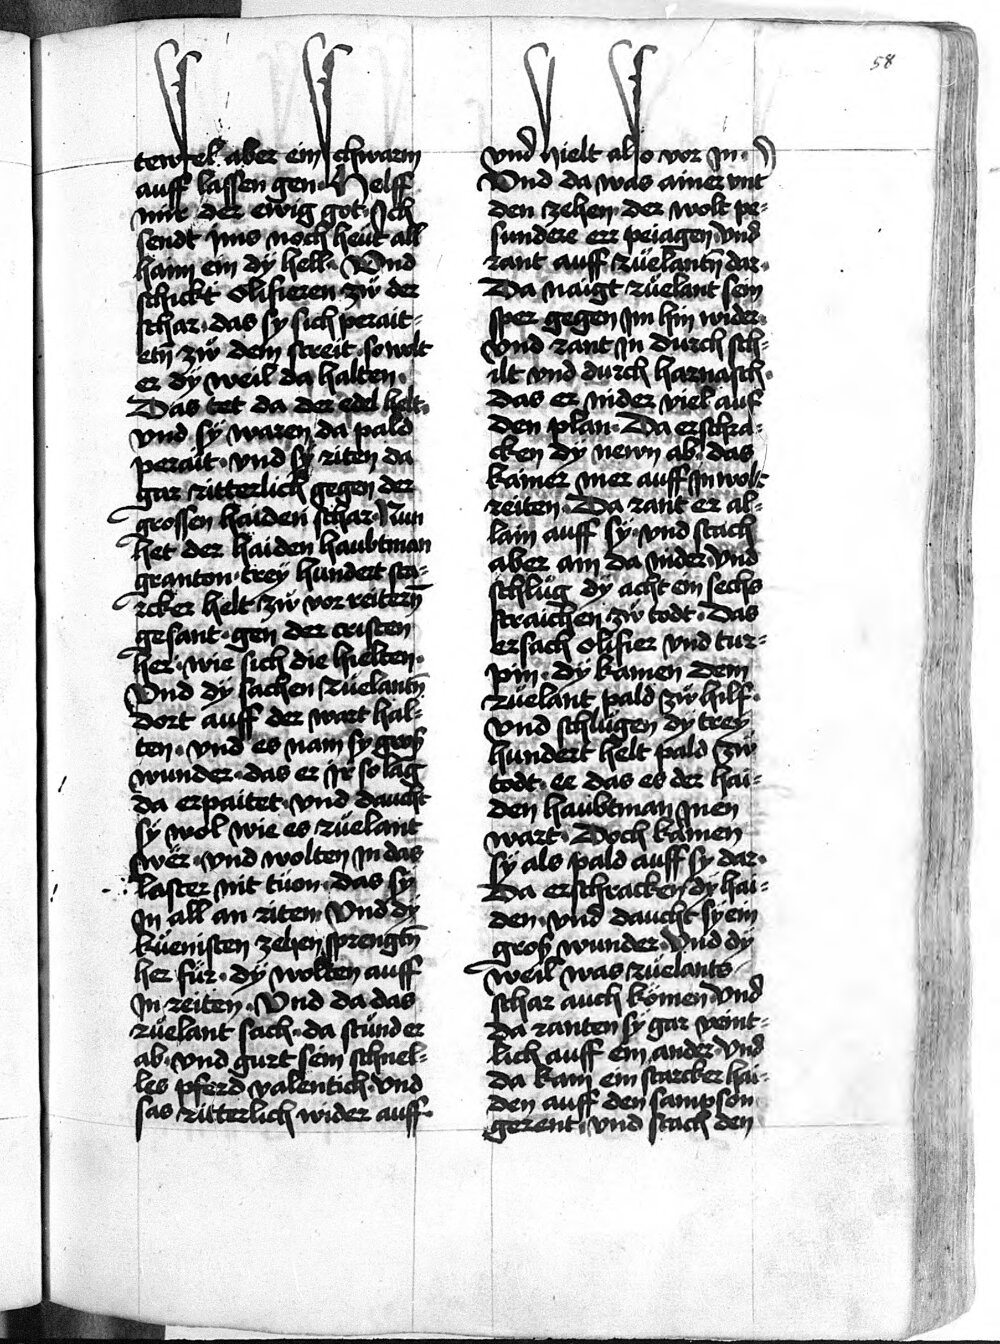 58
tewfel aber ein schwarm
auff lassen gen. Helff
mir der ewig got. Ich
sendt ims noch heüt all
haim ein dÿ hell. Vnd
schickt olifieren zw̎ der
schar. das sy sich perait-
etn̄ zw̎ dem streit. so wolt
er dÿ weil da halten.
Das tet da der edel helt.
vnd sÿ waren da pald
perait. vnd sÿ riten da
gar ritterlich gegen der
grossen haiden schar. Nun
het der haiden haubtman
granton. trey hundert sta-
rcker helt zw̎ vor reitern̄
gesant. gen der cristen
her. wie sich die hielten.
Vnd dÿ sachen rüelantn̄
dort auff der wart hal-
ten. vnd es nam sy groß
wunder. das er ir so lag
da erpaitet. vnd daucht
sÿ wol wie es rüelant
wër. vnd wolten in das
laster nit tüon. das sy
in all an riten. Vnd dÿ
küenisten zehen sprengtn̄
her für. dÿ wolten auff
in reiten. Vnd da das
rüelant sach. da stünd er
ab. vnd gurt sein schnel-
les pferd valentich. vnd
sas ritterlich wider auff.
vnd hielt also vor in.
Vnd da was ainer vnt
den zehen. der wolt pe-
sundere err peiagen. vnd
rant auff rüelantn̄ dar.
Da naigt rüelant sein
sper gegen im hin wider.
vnd rant in durch sch-
ilt vnd durch harnasch.
das er nider viel auf
den plan. Da erschra-
cken dÿ newn ab. das
kainer mer auff in wolt
reiten. Da rant er al-
lain auff sÿ. vnd stach
aber ain da nider. vnd
schlüg dÿ acht ein sechs
straichen zw̎ todt. Das
ersach olifier vnd tur-
pin. dÿ kamen dem
rüelant pald zw̎ hilf.
vnd schlügen dy trey
hundert helt pald zw̎
todt. ee das es der hai-
den haubtman inen
wart. Doch kamen
sÿ als pald auff sy dar.
Da erschracken dÿ hai-
den. vnd daucht sy ein
groß wunder. Vnd dÿ
weil was rüelants
schar auch kömen. vnd
da ranten sÿ gar veint-
lich auff ein ander. vnd
da kam ein starcker hai-
den auff den sampson
gerent. vnd stach den